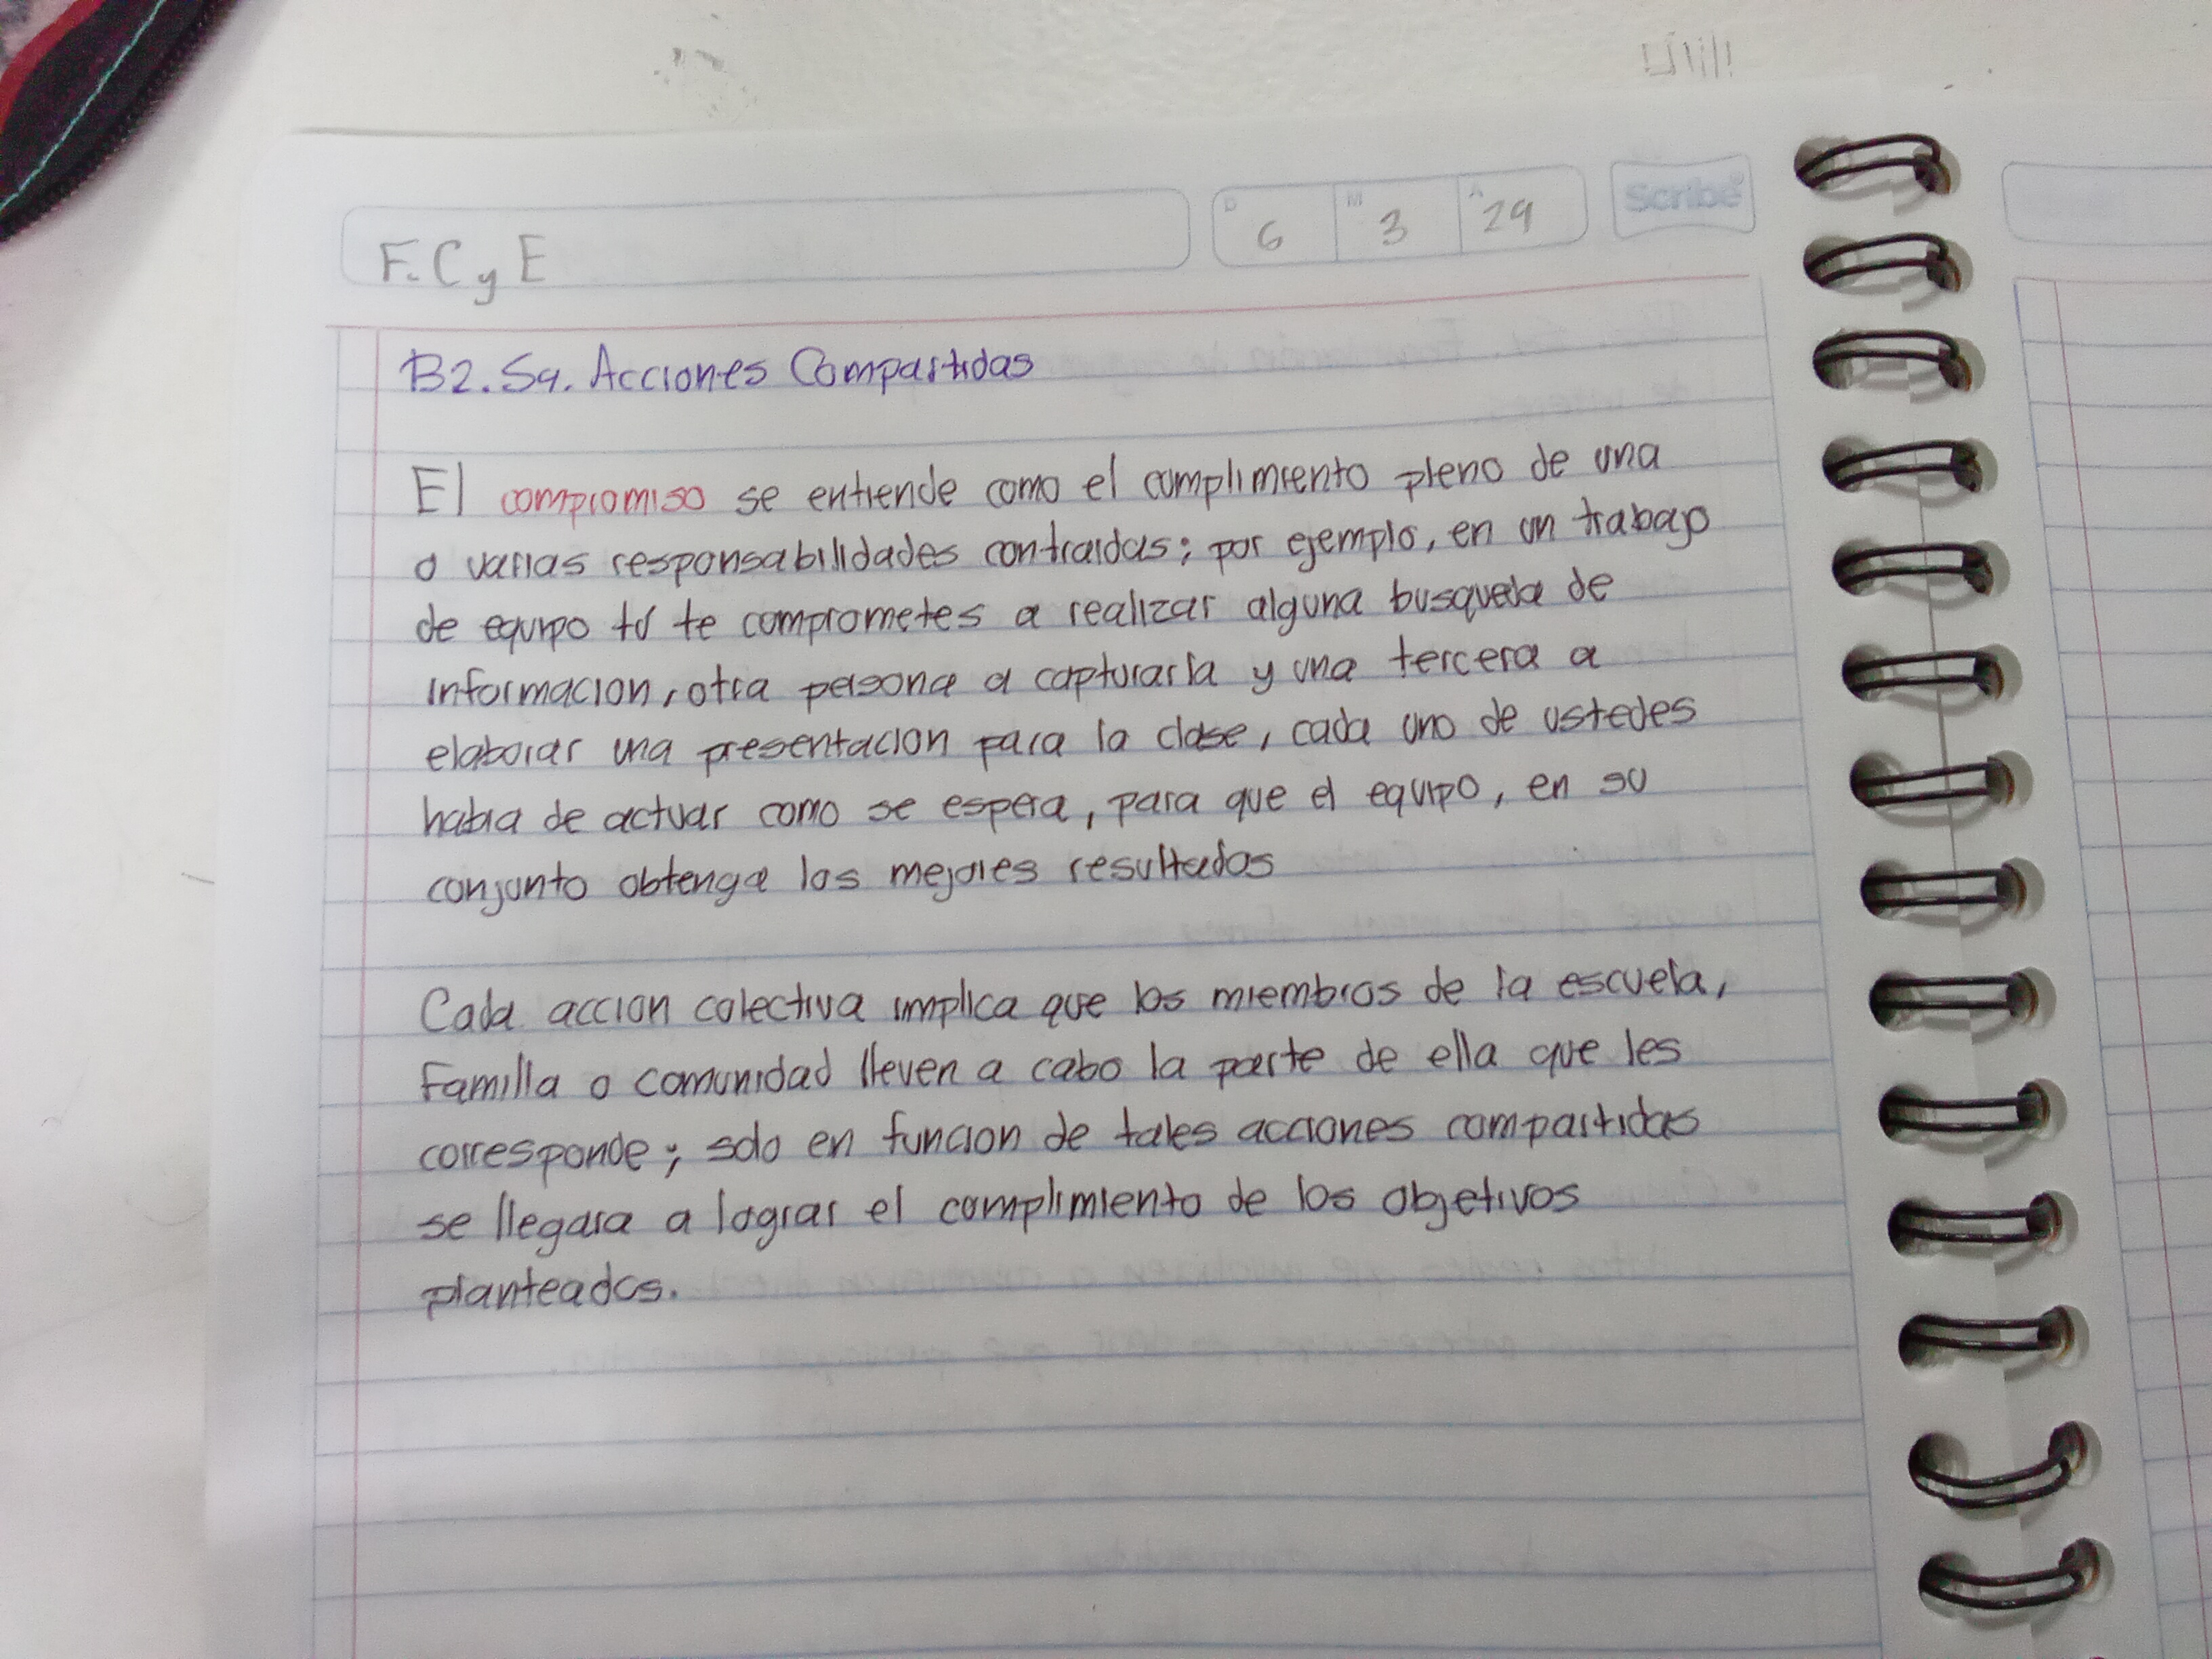 F.C y E
D 6 M 3 A 24 Scribe
B2. S9. Acciones Compartidas
El compromiso se entiende como el cumplimiento pleno de una
o varias responsabilidades contraidas; por ejemplo, en un trabajo
de equipo tú te comprometes a realizar alguna busqueda de
informacion, otra persona a capturarla y una tercera a
elaborar una presentacion para la clase, cada uno de ustedes
habra de actuar como se espera, para que el equipo, en su
conjunto obtenga los mejores resultados
Cada accion colectiva implica que los miembros de la escuela,
Familia o comunidad lleven a cabo la parte de ella que les
corresponde; solo en funcion de tales acciones compartidas
se llegara a lograr el cumplimiento de los objetivos
planteados.